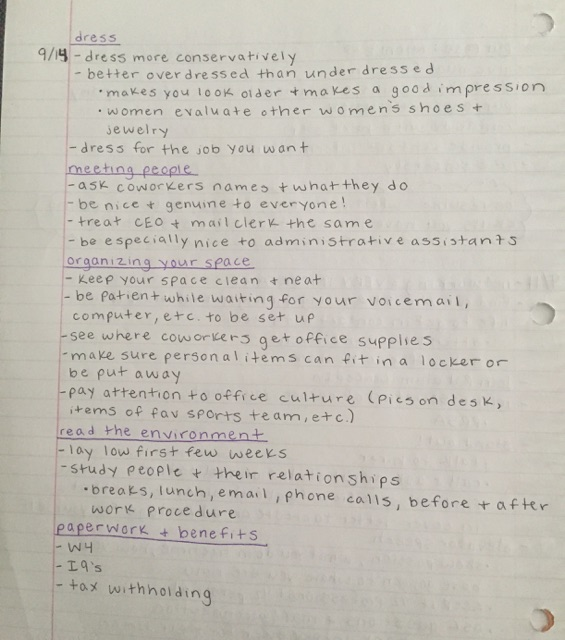 dress
9/14 - dress more conservatively
- better overdressed than under dressed
• makes you look older + makes a good impression
• women evaluate other women's shoes +
jewelry
- dress for the job you want
meeting people
- ask coworkers names + what they do
- be nice + genuine to everyone!
- treat CEO + mail clerk the same
- be especially nice to administrative assistants
organizing your space
- keep your space clean + neat
- be patient while waiting for your voicemail,
computer, etc. to be set up
- see where coworkers get office supplies
- make sure personal items can fit in a locker or
be put away
- pay attention to office culture (pics on desk,
items of fav sports team, etc.)
read the environment
- lay low first few weeks
- study people + their relationships
• breaks, lunch, email, phone calls, before + after
work procedure
paperwork + benefits
- W4
- I9's
- tax withholding